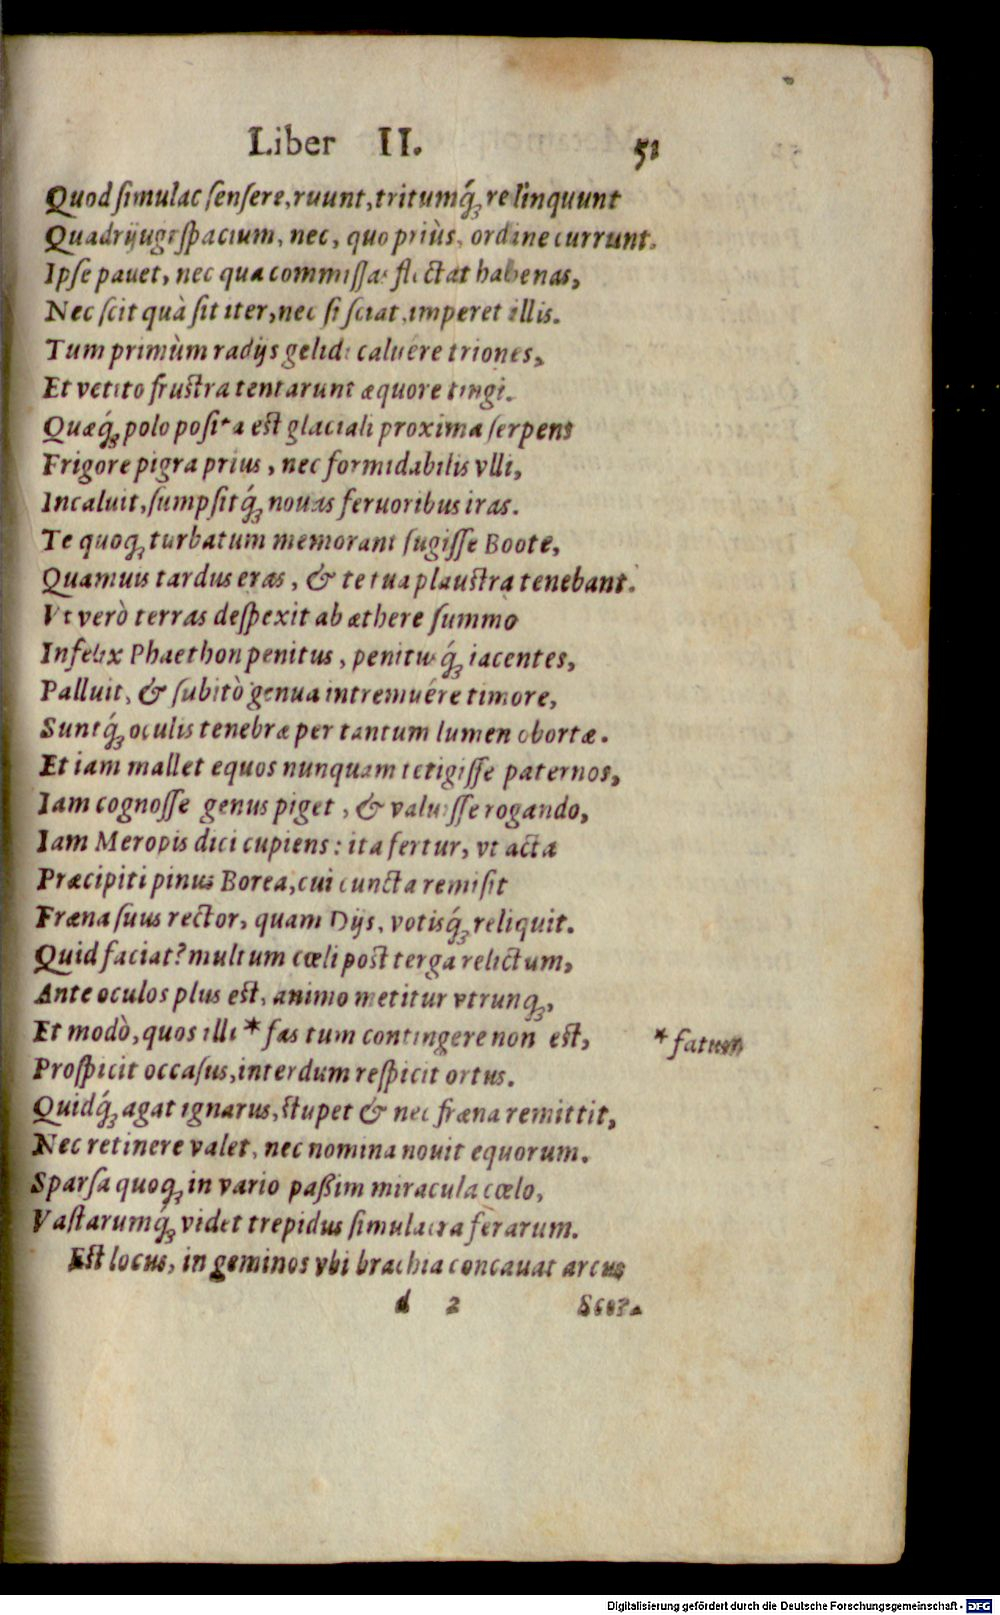 Liber II. 51
Quod ſimulac ſenſere, ruunt, tritumq́; relinquunt
Quadrijugi ſpacium, nec, quo priùs, ordine currunt.
Ipſe pauet, nec qua commiſſas flectat habenas,
Nec ſcit quà ſit iter, nec ſi ſciat, imperet illis.
Tum primùm radijs gelidi caluêre triones,
Et vetito fruſtra tentarunt æquore tingi.
Quæq́; polo poſita eſt glaciali proxima ſerpens
Frigore pigra prius, nec formidabilis vlli,
Incaluit, ſumpſitq́; nouas feruoribus iras.
Te quoq; turbatum memorant fugiſſe Boote,
Quamuis tardus eras, & te tua plauſtra tenebant.
Vt verò terras deſpexit ab æthere ſummo
Infelix Phaethon penitus, penitusq́; iacentes,
Palluit, & ſubitò genua intremuêre timore,
Suntq́; oculis tenebræ per tantum lumen obortæ.
Et iam mallet equos nunquam tetigiſſe paternos,
Iam cognoſſe genus piget, & valuiſſe rogando,
Iam Meropis dici cupiens: ita fertur, vt acta
Præcipiti pinus Borea, cui cuncta remiſit
Fræna ſuus rector, quam Dijs, votisq́; reliquit.
Quid faciat? multum cœli poſt terga relictum,
Ante oculos plus eſt, animo metitur vtrunq;,
Et modò, quos illi * fas tum contingere non eſt, * fatum
Proſpicit occaſus, interdum reſpicit ortus.
Quidq́; agat ignarus, ſtupet & nec fræna remittit,
Nec retinere valet, nec nomina nouit equorum.
Sparſa quoq; in vario paßim miracula cœlo,
Vaſtarumq́; videt trepidus ſimulacra ferarum.
Eſt locus, in geminos vbi brachia concauat arcus
d 2 Scor-
Digitalisierung gefördert durch die Deutsche Forschungsgemeinschaft - DFG